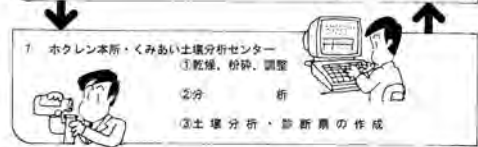 7 ホクレン本所・くみあい土壌分析センター
①乾燥、粉砕、調整
②分析
③土壌分析・診断票の作成